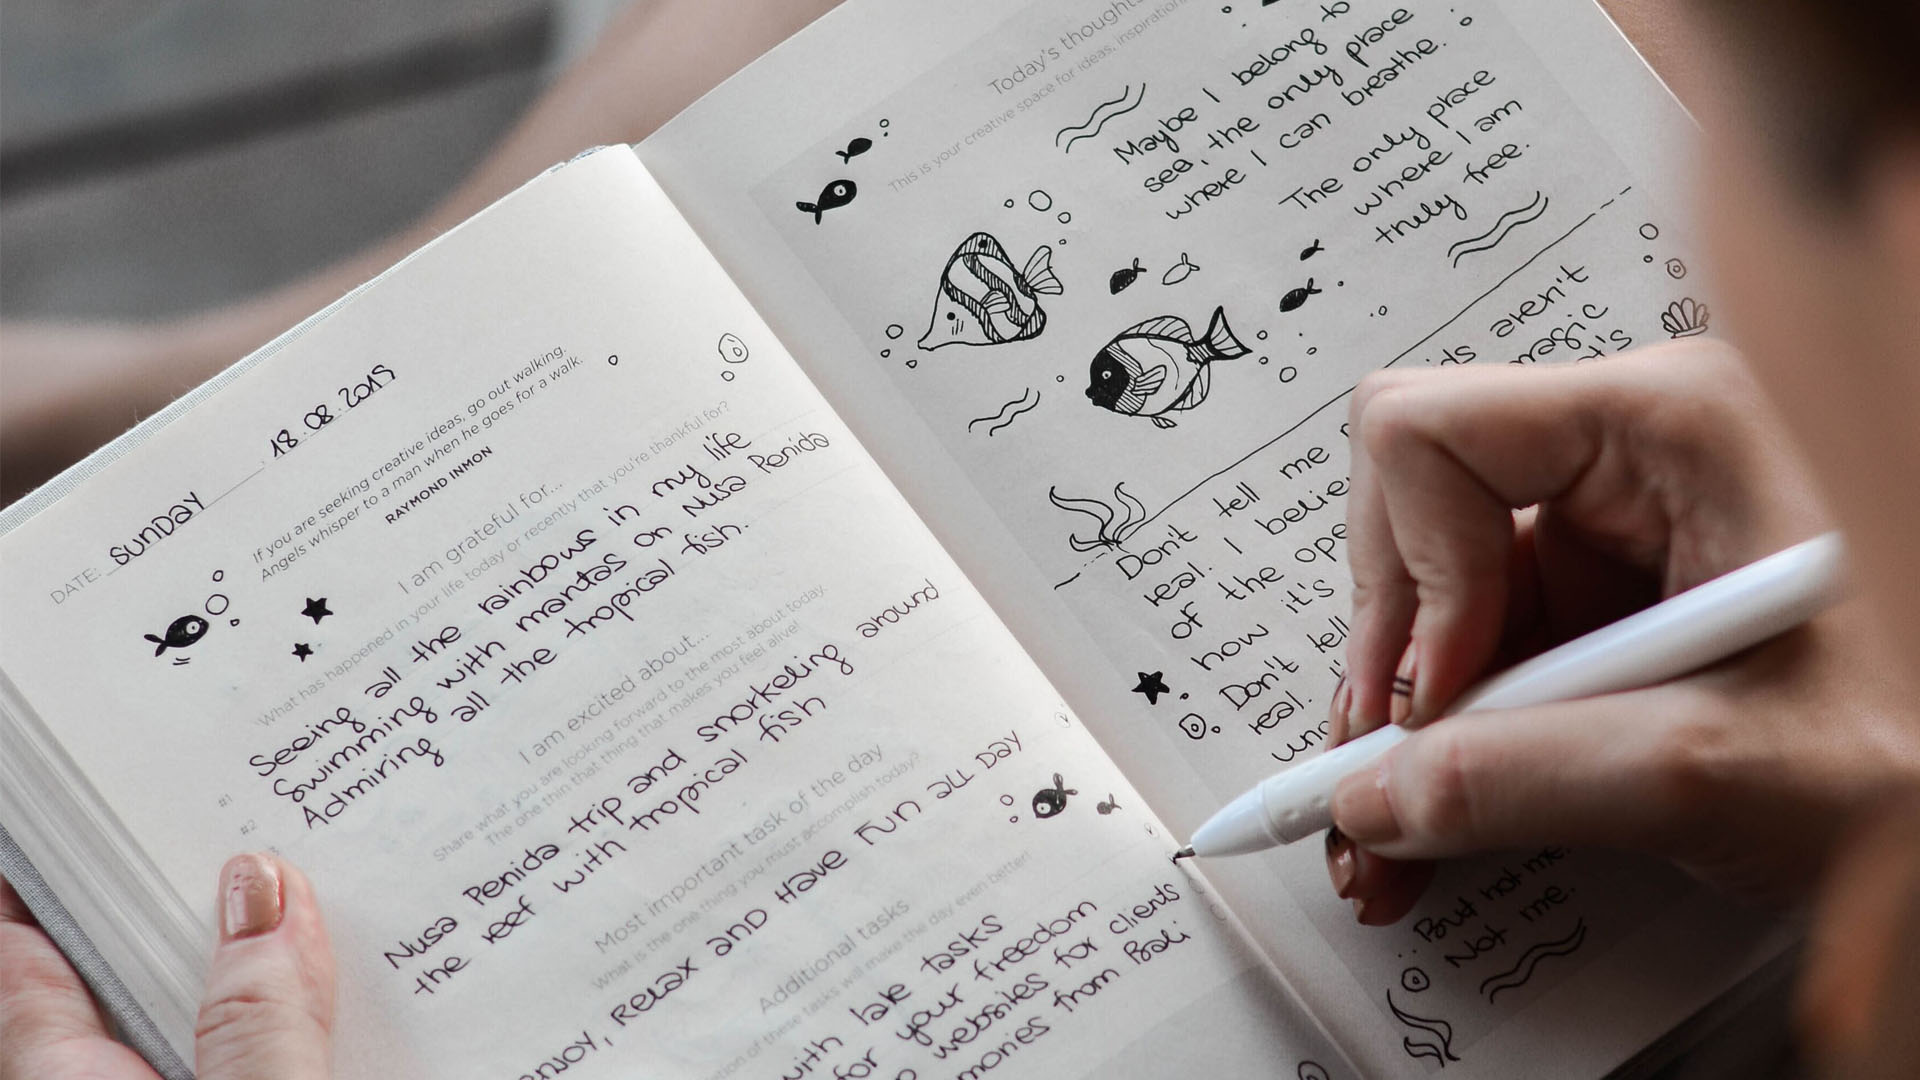 DATE: SUNDAY 18.08.2019
If you are seeking creative ideas, go out walking.
Angels whisper to a man when he goes for a walk.
RAYMOND INMON
I am grateful for...
What has happened in your life today or recently that you're thankful for?
#1 Seeing all the rainbows in my life
#2 Swimming with mantas on Nusa Penida
Admiring all the tropical fish.
I am excited about...
Share what you are looking forward to the most about today.
The one thin that thing that makes you feel alive!
Nusa Penida trip and snorkeling around
the reef with tropical fish
Most important task of the day
What is the one thing you must accomplish today?
ENJOY, RELAX AND HAVE FUN ALL DAY
Additional tasks
of these tasks will make the day even better!
with tasks
for your freedom
websites for clients
from Bali
Today's thoughts
This is your creative space for ideas, inspiration
Maybe I belong to
sea, the only place
where I can breathe.
The only place
where I am
truly free.
aren't
magic
Don't tell me
real. I
of the
how it's
Don't tell
real.
But not me.
Not me.